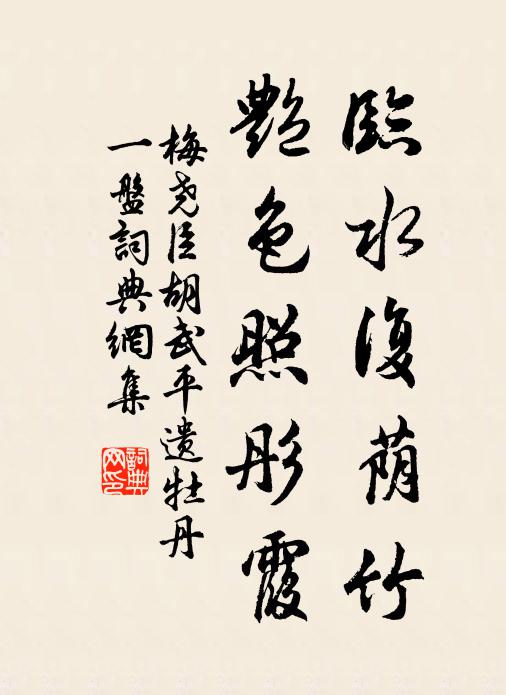 臨水復蔭竹
艷色照彤霞
梅尧臣胡武平遗牡丹
一盤詞典網集
詞典网印